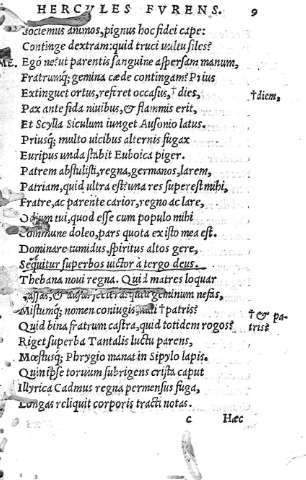 HERCVLES FVRENS. 9
Sociemus animos, pignus hoc fidei cape:
Continge dextram: quid truci vultu siles?
ME. Egó ne ut parentis sanguine aspersam manum,
Fratrumq; gemina cæde contingam? Prius
Extinguet ortus, referet occasus, † dies, †diem,
Pax ante fida niuibus, & flammis erit,
Et Scylla Siculum iunget Ausonio latus.
Priusq; multo uicibus alternis fugax
Euripus unda stabit Euboica piger.
Patrem abstulisti, regna, germanos, larem,
Patriam, quid ultra est? una res superest mihi,
Fratre, ac parente carior, regno ac lare,
Odium tui, quod esse cum populo mihi
Commune doleo, pars quota ex isto mea est.
Dominare tumidus, spiritus altos gere,
Sequitur superbos uictor à tergo deus.
Thebana noui regna. Quid matres loquar
Passas, & geminum nefas,
Mistumq; nomen coniugis, nati † patris? †& pa-
Quid bina fratrum castra, quid totidem rogos? tris?
Riget superba Tantalis luctu parens,
Mœstusq; Phrygio manat in Sipylo lapis.
Quin ipse toruum subrigens crista caput
Illyrica Cadmus regna permensus fuga,
Longas reliquit corporis tracti notas.
c Hæc